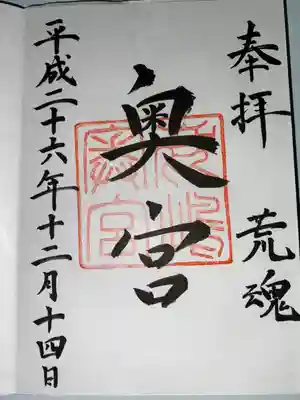 奉拝 荒魂
奥宮
平成二十六年十二月十四日